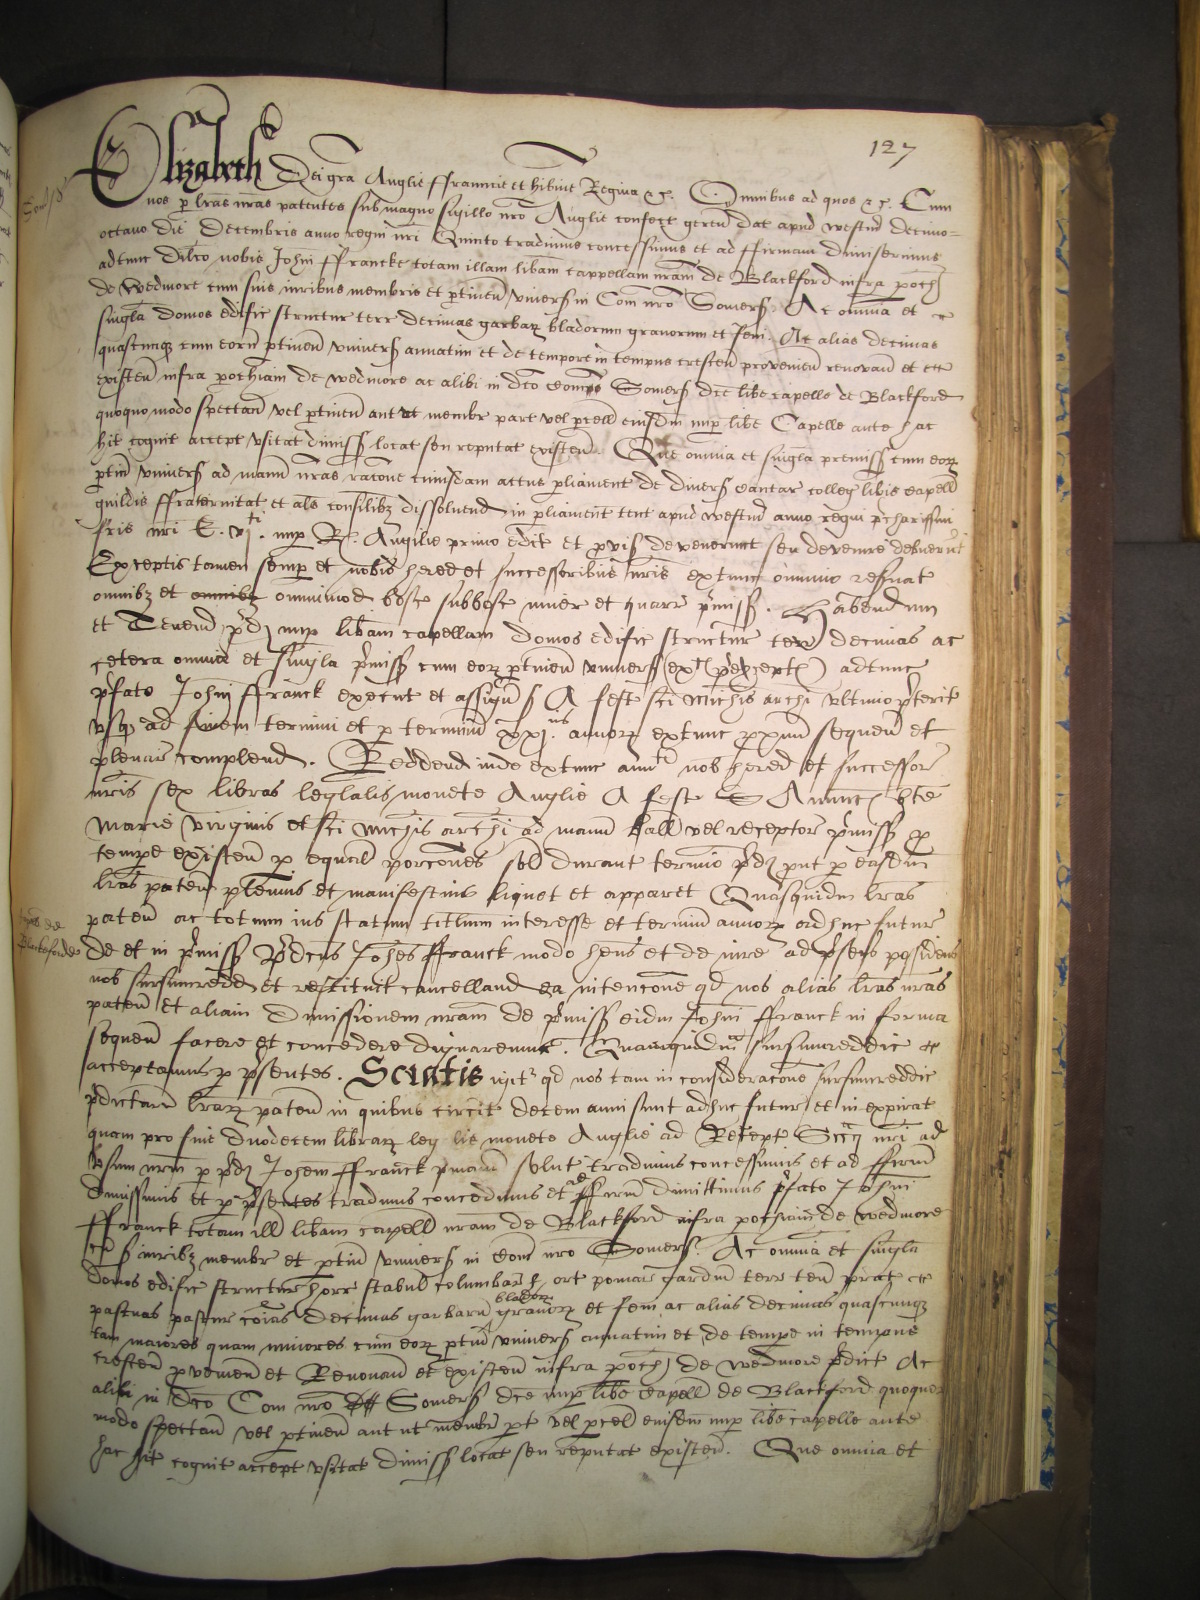 127
Elizabeth Dei gra Anglie ffrauncie et hibnie Regina &c. Omnibus ad quos &c. Cum
nos p lras nras patentes sub magno sigillo nro Anglie confect geren dat apud westm decimo
octavo die Decembris anno regni nri Quinto tradimus concessimus et ad ffirmam dimiserimus
adtunc dilco nobis Johni ffrancke totam illam libam cappellam nram de Blackford infra poch
de wedmore cum suis iuribus membris et ptinen univers in Com nro Somers. Ac omnia et
singla domos edific structur terr decimas garbar bladorum granorum et feni. Ac alias decimas
quascumq cum eorum ptinen univers annatim et de tempore in tempus crescen provenien renovan et
existen infra pochiam de wedmore ac alibi in dco Com Somers dce libe capelle de Blackford
quoquo modo spectan vel ptinen aut ut membr part vel pcell eiusdm nup libe Capelle ante hac
hit cognit accept usitat dimiss locat seu reputat existen. Que omnia et singla premiss cum eor
ptin univers ad manus nras racone cuiusdam actus pliament de divers cantar colleg libis capell
guildis ffraternitat et als consilibz dissolvend in pliament tent apud westm anno regni pcharissimi
fris nri E. vj ti. nup R. Anglie primo edit et provis devenerunt seu devenire debuerut
Exceptis tamen semp et nobis hered et successoribus nris extunc omnino resvat
omnibz et omnibz omnimod bosc subbosc miner et quarr pmiss. Habendum
et Tenend pd nup libam capellam domos edific structur terr decimas ac
cetera omnia et singla pmiss cum eor ptinen univers (except pexcept) adtunc
pfato Johni ffranck execut et assign s A fest sci Michis archi ultimo pterit
usq ad finem termini et p terminu xxj.us annor extunc pxim sequen et
plenar complend. Reddend inde extunc annt nob hered et successor
nris sex libras leglalis monete Anglie A fest Annunc bte
Marie Virginis et sci Michis archi ad manus ball vel receptor pmiss p
tempe existen p equal porcones sol durant termio pd put p easdm
lras paten plenius et manifestius liquet et apparet Quasquidm lras
paten ac totum ius statum titlum interesse et terminu annor adhuc futur
de et in pmiss Pdcus Johes ffranck modo hens et de iure ad psens possidens
nob sursumredd et restituit cancelland ea intencone qd nos alias lras nras
paten et aliam dimissionem nram de pmiss eidm Johni ffranck in forma
sequen facere et concedere dignaremur. Quamquidm sursumreddic
acceptamus p psentes. Sciatis igit qd nos tam in consideracone sursumreddic
pdictaru lrar paten in quibus circit decem anni sunt adhuc futur et inexpirat
quam pro fine duodecem librar leg lis monete Anglie ad Recept Sccij nri ad
usum nrm p pd Johem ffranck pmanu solut tradimus concessimus et ad ffirm
dimissimus et p psentes tradimus concedimus et ad ffirm dimittimus pfato Johni
ffranck totam ill libam capell nram de Blackford infra pochiam de wedmore
cu s iuribz membr et ptin univers in Com nro Somers. Ac omnia et singla
domos edific structur horr stabul columbar ort pomar gardin terr ten prat
pastuas pastur coias decimas garbaru bladoru granor et feni ac alias decimas quascumq
tam maiores quam minores cum eor ptin univers annatim et de tempe in tempus
crescen pvenien et Renovan et existen infra poch de wedmore pdict Ac
alibi in dco Com nro Somers dce nup libe capell de Blackford quoquo
modo spectan vel ptinen aut ut membr pt vel pcel eiusdm nup libe capelle ante
hac hit cognit accept usitat dimiss locat seu reputat existen. Que omnia et
de
Blackeforde